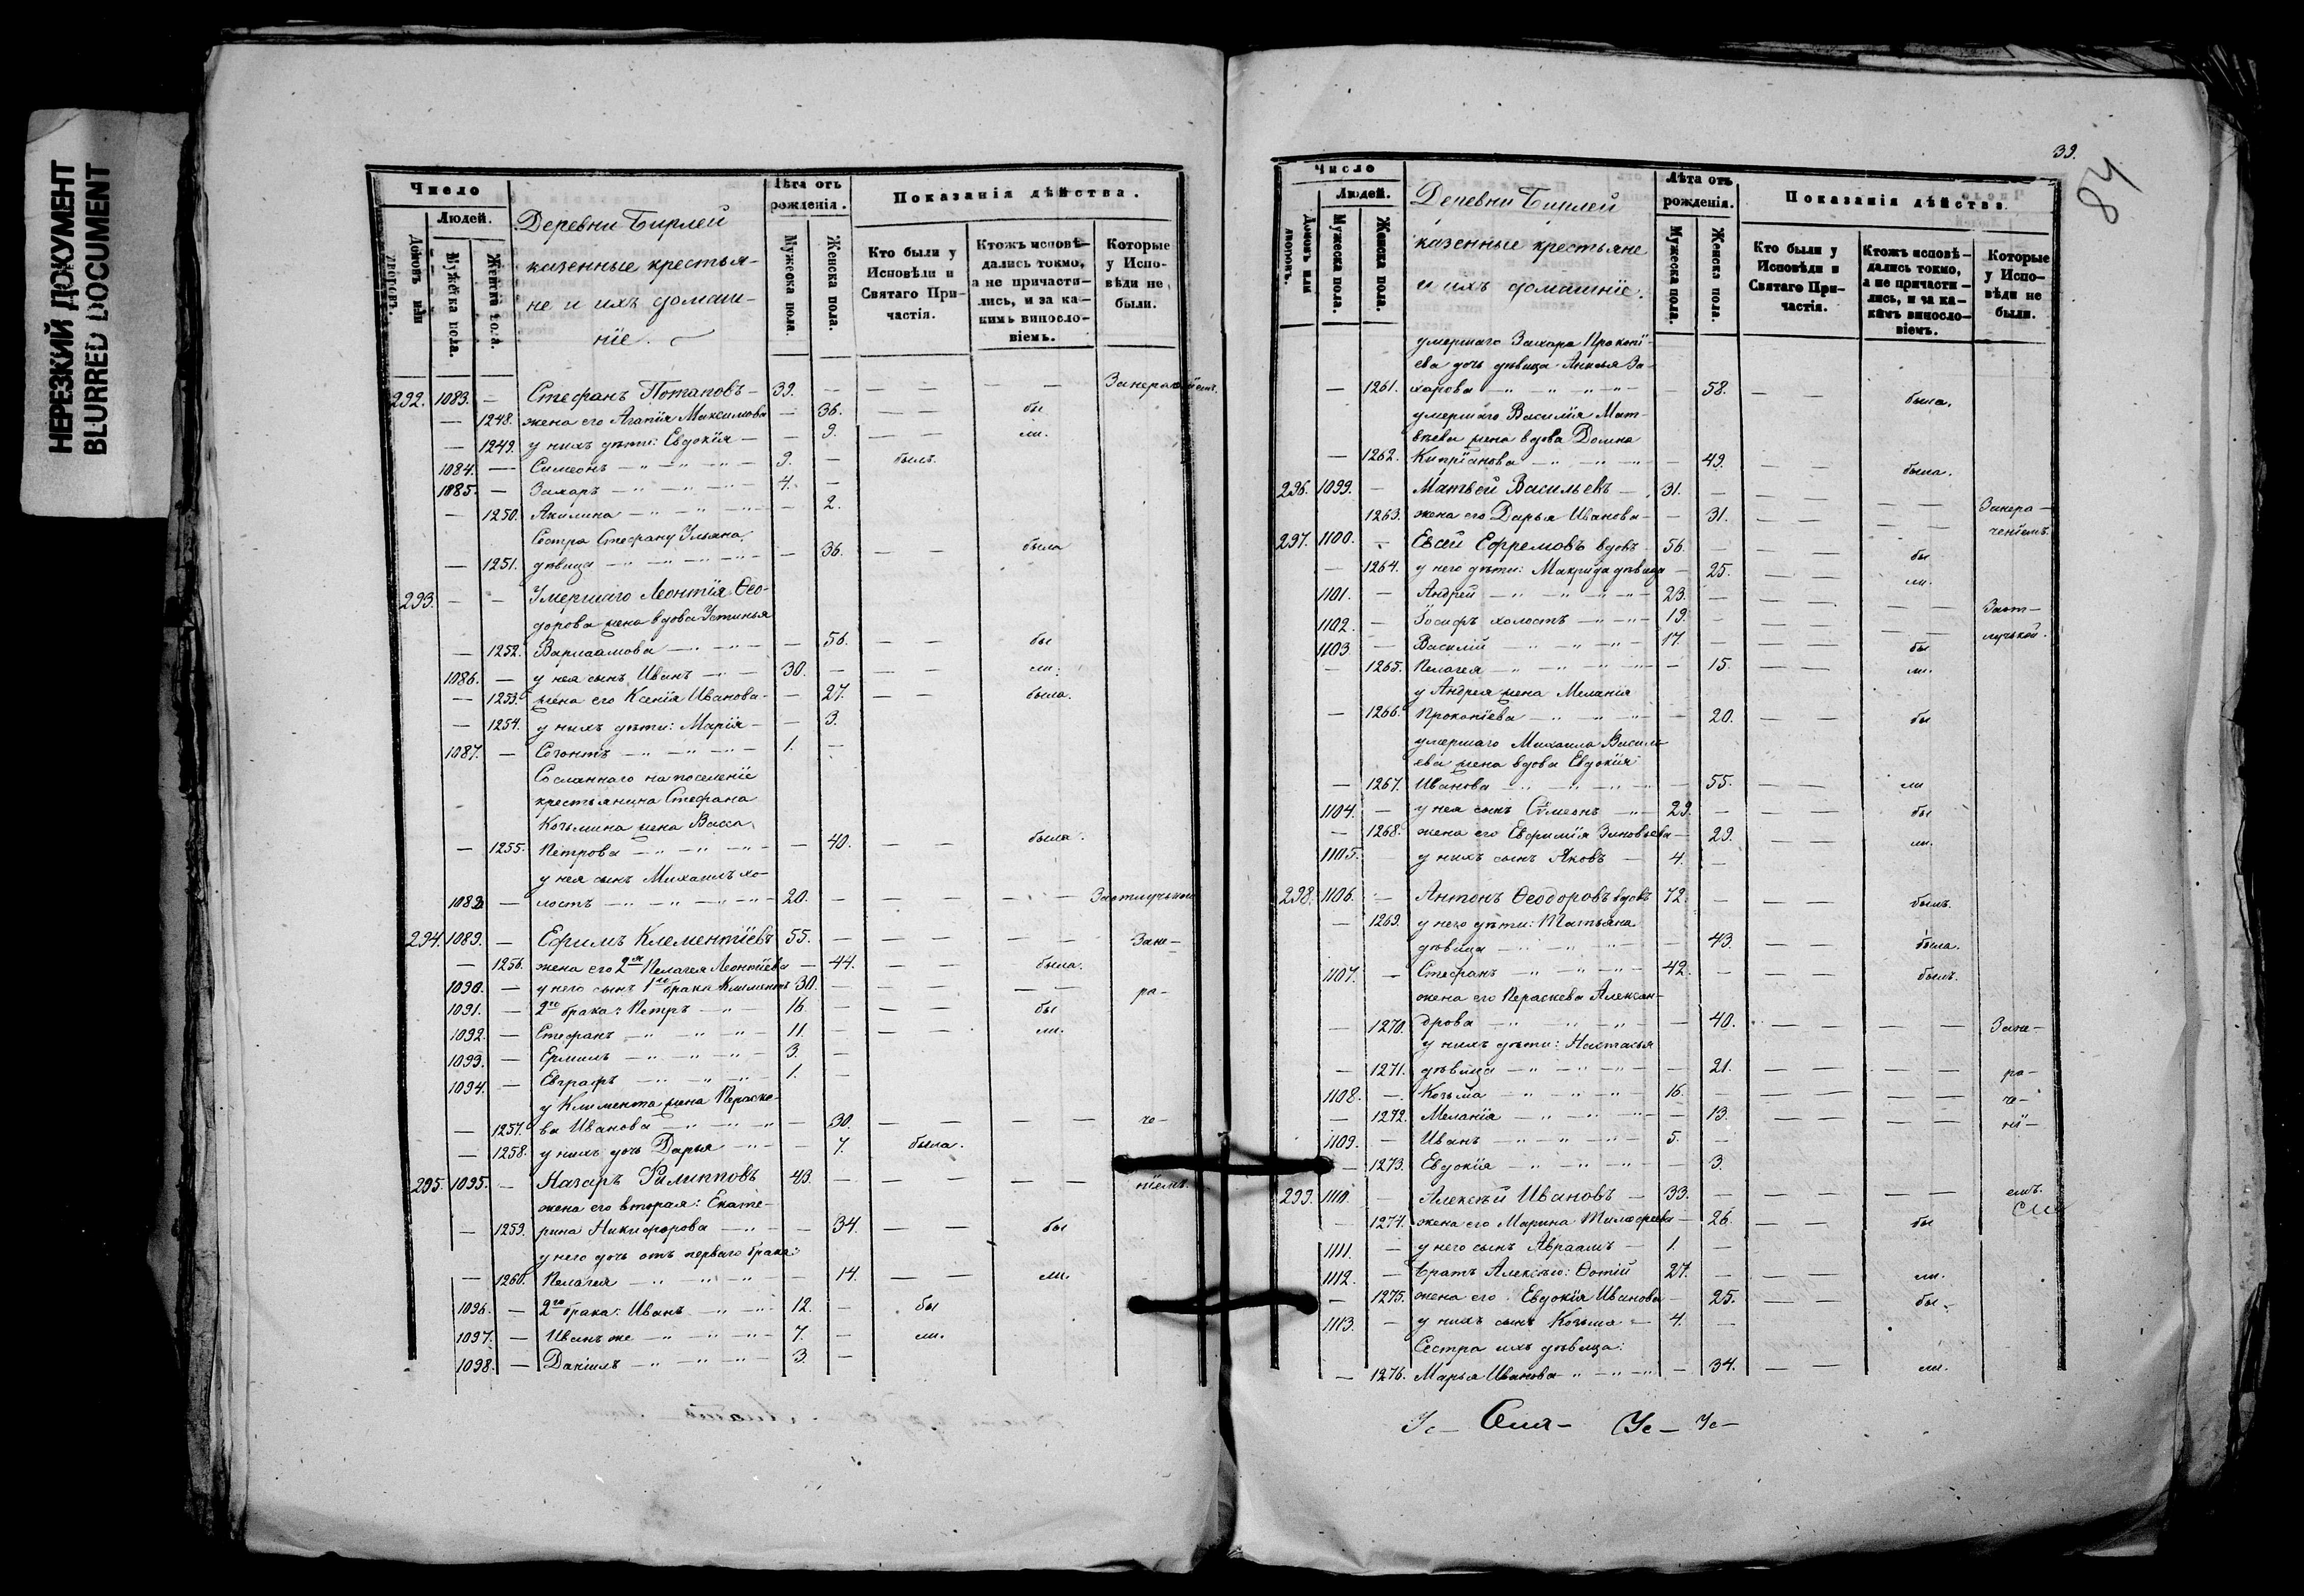 НЕРЕЗКИЙ ДОКУМЕНТ
BLURRED DOCUMENT
Число
Людей.
Домовъ или дворовъ.
Мужеска пола.
Женска пола.
Деревни Бирлей
казенные крестья-
не и ихъ домаш-
ніе.
Лѣта отъ рожденія.
Мужеска пола.
Женска пола.
Показанія дѣйства.
Кто были у Исповѣди и Святаго При-частія.
Ктожъ исповѣ-дались токмо, а не причасти-лись, и за ка-кимъ винословіемъ.
Которые у Испо-вѣди не были.
292. 1083. — Стефанъ Потаповъ — 39. — — — — —
— 1248. жена его Агапія Максимова — 36. — — бы
— 1249. у нихъ дѣти: Евдокія — — 9. — — ли.
1084. — Симеонъ — 9. — былъ.
1085. — Захаръ — 4. —
— 1250. Акилина — 2.
Сестра Стефану Ульяна,
— 1251. дѣвица — 36. — — была
293. — — Умершаго Леонтія Ѳео-
дорова жена вдова Устинья
— 1252. Варлаамова — 56. — — бы
1086. — у нея сынъ Иванъ — 30. — — — ли.
— 1253. жена его Ксенія Иванова — 27. — — была.
— 1254. у нихъ дѣти: Марія — — 3.
1087. — Созонтъ — 1. —
Сосланнаго на поселеніе
крестьянина Стефана
Козьмина жена Васса
— 1255. Петрова — 40. — — была.
у нея сынъ Михаилъ хо-
1088. — лостъ — 20. — — — — — Заотлучькою
294. 1089. — Ефимъ Клементіевъ 55. — — — — — Зане-
— 1256. жена его 2я Пелагея Леонтіева — 44. — — была.
1090. — у него сынъ 1го брака Климентъ 30. — — — — — ра-
1091. — 2го брака: Петръ — 16 — — — бы
1092. — Стефанъ — 11. — — — ли.
1093. — Ермилъ — 3. —
1094. — Евграфъ — 1. —
у Климента жена Параске-
— 1257. ва Иванова — 30. — — — — че-
— 1258. у нихъ дочь Дарья — 7. была.
295. 1095. — Назаръ Филипповъ 43. — — — — — ніемъ.
жена его вторая: Екате-
— 1259. рина Никифорова — 34. — — бы
у него дочь отъ перваго брака:
— 1260. Пелагея — 14. — — ли.
1096. — 2го брака: Иванъ — 12. — бы
1097. — Иванъ же — 7. — ли.
1098. — Даніилъ — 3. —
39.
84
Число
Людей.
Домовъ или дворовъ.
Мужеска пола.
Женска пола.
Деревни Бирлей
казенные крестьяне
и ихъ домашніе.
Лѣта отъ рожденія.
Мужеска пола.
Женска пола.
Показанія дѣйства.
Кто были у Исповѣди и Святаго При-частія.
Ктожъ исповѣ-дались токмо, а не причасти-лись, и за ка-кимъ винословіемъ.
Которые у Испо-вѣди не были.
умершаго Захара Прокопі-
ева дочь дѣвица Анисья За-
— 1261. харова — 58. — — была.
умершаго Василія Мат-
вѣева жена вдова Домна
— 1262. Кипріанова — 49. — — была.
296. 1099. — Матвей Васильевъ — 31. — — — — — Занера-
1263. жена его Дарья Иванова — 31. — — — — ченіемъ.
297. 1100. — Евсей Ефремовъ вдовъ — 56. — — — бы
— 1264. у него дѣти: Макрида дѣвица — 25. — — ли.
1101. — Андрей — 23. — — — — — Заот-
1102. — Іосифъ холостъ — 19. — — — — — лучькой.
1103. — Василій — 17. — — — бы
— 1265. Пелагея — 15. — — ли.
у Андрея жена Меланія
— 1266. Прокопіева — 20. — — бы
умершаго Михаила Василь-
ева жена вдова Евдокія
— 1267. Иванова — 55. — — ли
1104. — у нея сынъ Сѵмеонъ — 29. — — — бы
— 1268. жена его Евфимія Зиновьева — 29. — — ли.
1105. — у нихъ сынъ Яковъ — 4. —
298. 1106. — Антонъ Ѳеодоровъ вдовъ 72. — — — былъ.
— 1269. у него дѣти: Татьяна
дѣвица — 43. — — была.
1107. — Стефанъ — 42. — — — былъ.
жена его Параскева Алексан-
— 1270. дрова — 40. — — — — Зане-
у нихъ дѣти: Настасья
— 1271. дѣвица — 21. — — — — ра-
1108. — Козьма — 16. — — — — — че-
— 1272. Меланія — 13. — — — — ні-
1109. — Иванъ — 5. —
— 1273. Евдокія — 3.
299. 1110. — Алексѣй Ивановъ — 33. — — — — — емъ.
— 1274. жена его Марина Тимофеева — 26. — — бы
1111. — у него сынъ Авраамъ — 1. —
1112. — Братъ Алексѣю: Ѳотій 27. — — — ли.
— 1275. жена его Евдокія Иванова — 25. — — бы-
1113. — у нихъ сынъ Козьма — 4. —
Сестра ихъ дѣвица:
— 1276. Марья Иванова — 34. — — ли.